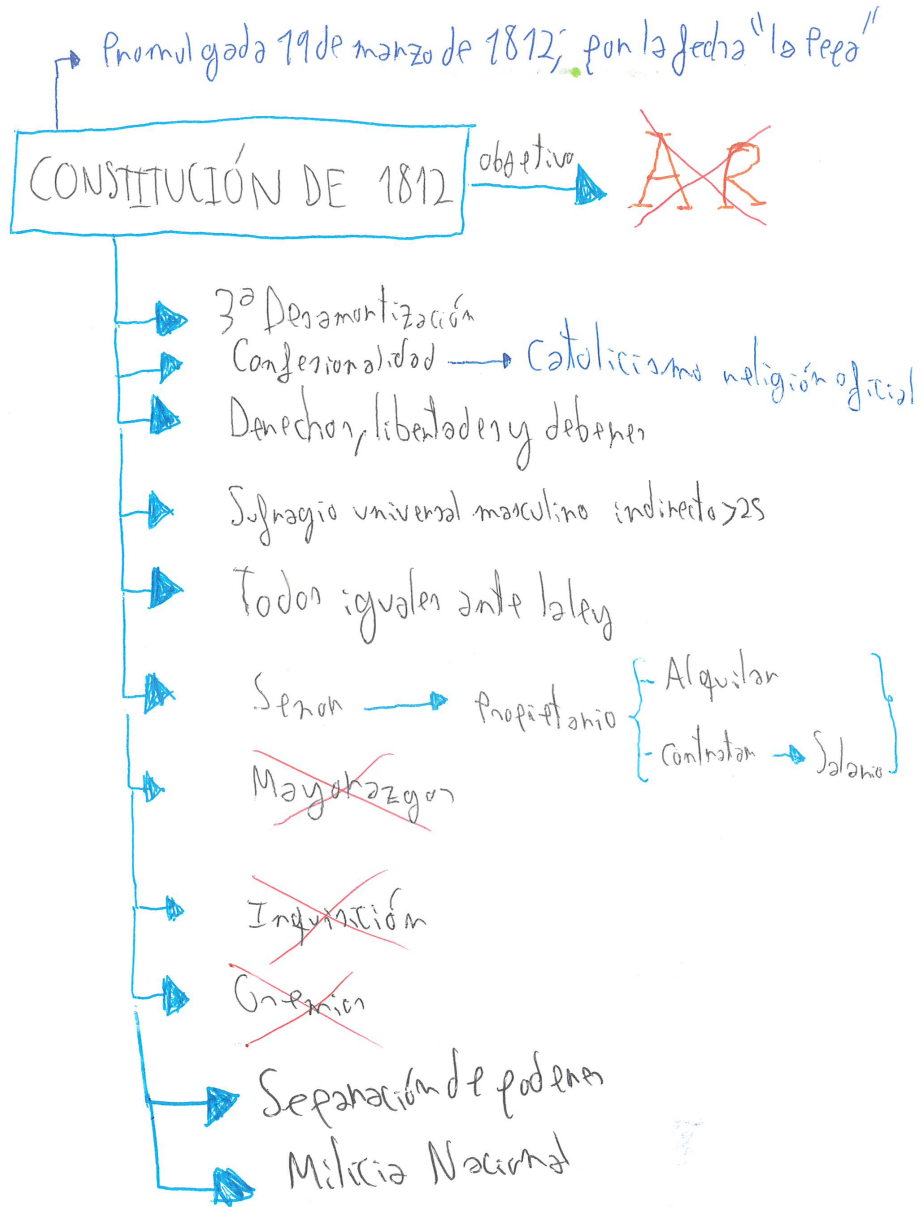 Promulgada 19 de marzo de 1812; por la fecha "la Pepa"
CONSTITUCIÓN DE 1812
objetivo
AR
3ª Desamortización
Confesionalidad
Catolicismo religión oficial
Derechos, libertades y deberes
Sufragio universal masculino indirecto >25
Todos iguales ante la ley
Señor
Propietario
- Alquilar
- contratar
Salario
Mayorazgos
Inquisición
Gremios
Separación de poderes
Milicia Nacional